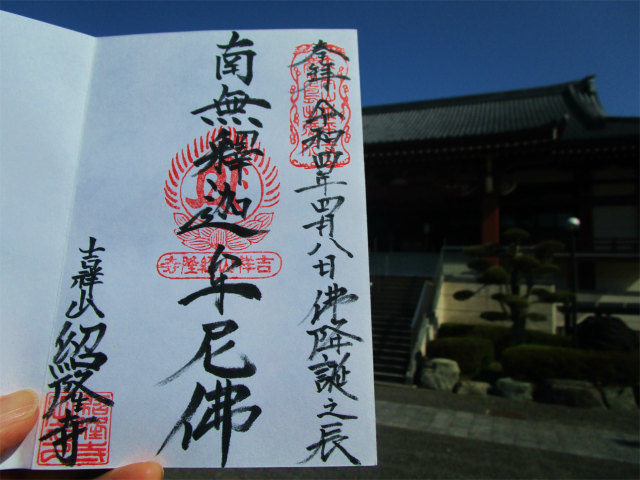 奉拝 令和四年四月八日 佛降誕之辰
南無釋迦牟尼佛
吉祥山紹隆寺
吉祥山紹隆寺